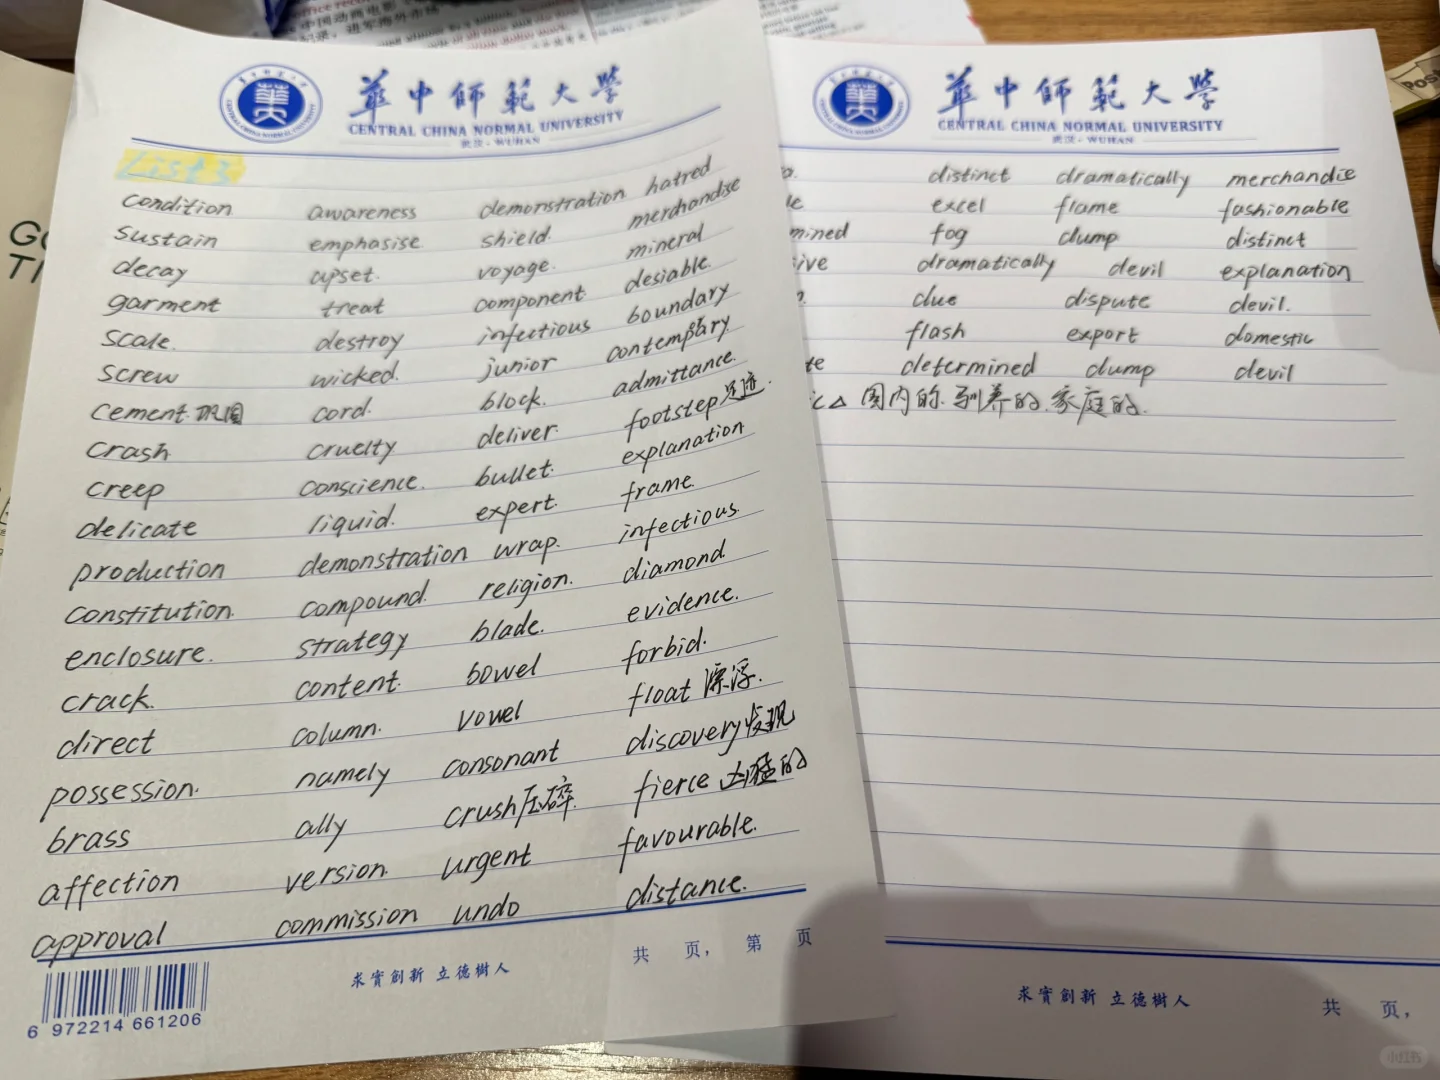 中国动画电影
纪录，进军海外市场
華中師範大學
CENTRAL CHINA NORMAL UNIVERSITY
武汉·WUHAN
List 3
condition awareness demonstration hatred
sustain emphasise shield. merchandise
decay upset. voyage. mineral
garment treat component desiable.
scale. destroy infectious boundary
screw wicked. junior contemporary
cement.巩固 cord. block. admittance.
crash cruelty deliver footstep足迹.
creep conscience. bullet. explanation
delicate liquid. expert. frame.
production demonstration wrap. infectious.
constitution. compound. religion. diamond
enclosure. strategy blade. evidence.
crack. content. bowel forbid.
direct column. vowel float 漂浮.
possession. namely consonant discovery发现
brass ally crush压碎. fierce 凶猛的
affection version. urgent favourable.
approval commission undo distance.
共 页， 第 页
求實創新 立德樹人
6 972214 661206
華中師範大學
CENTRAL CHINA NORMAL UNIVERSITY
武汉·WUHAN
distinct dramatically merchandise
le excel flame fashionable
mined fog clump distinct
ive dramatically devil explanation
clue dispute devil.
flash export domestic
te determined clump devil
ic△ 国内的.驯养的.家庭的.
求實創新 立德樹人
共 页，
GO
TI
Post
小红书